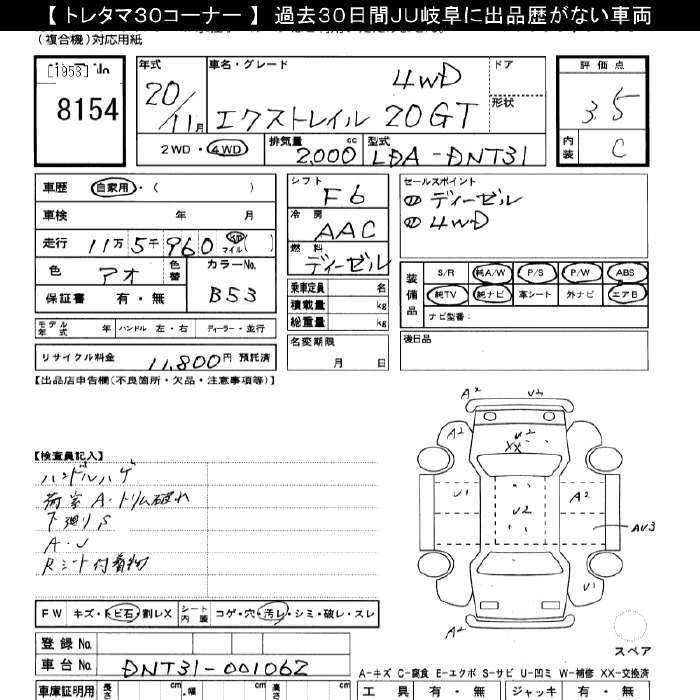 【 トレタマ30コーナー 】 過去30日間JU岐阜に出品歴がない車両
(複合機)対応用紙
8154
年式
20/11月
車名・グレード
4WD
エクストレイル 20GT
ドア
形状
評価点
3.5
内装
C
2WD・4WD
排気量
2,000 cc
型式
LDA-DNT31
車歴 自家用・( )
車検 年 月
走行 11万5千960 km マイル( )
色 アオ 色替 カラーNo. B53
保証書 有・無
シフト F6
冷房 AAC
燃料 ディーゼル
乗車定員 名
積載量 kg
総重量 kg
セールスポイント
① ディーゼル
② 4WD
装備品
S/R 純A/W P/S P/W ABS
純TV 純ナビ 革シート 外ナビ エアB
ナビ型番:
モデル年式 年 ハンドル 左・右 ディーラー・並行
名変期限 月 日
後日品
リサイクル料金 11,800円 預託済
【出品店申告欄(不良箇所・欠品・注意事項等)】
【検査員記入】
ハンドルハゲ
荷室 A・トリム破れ
下廻りS
A・U
Rシート付着物
A2 U2
A2 U2 XX
U1 U2 A2
AU3
U1
A2
スペア
FW キズ・トビ石・割レX シート内装 コゲ・穴・汚レ・シミ・破レ・スレ
登録No.
車台No. DNT31-001062
A-キズ C-腐食 E-エクボ S-サビ U-凹ミ W-補修 XX-交換済
車庫証明用 長さ cm ・幅 cm 高さ cm
工具 有・無 ジャッキ 有・無